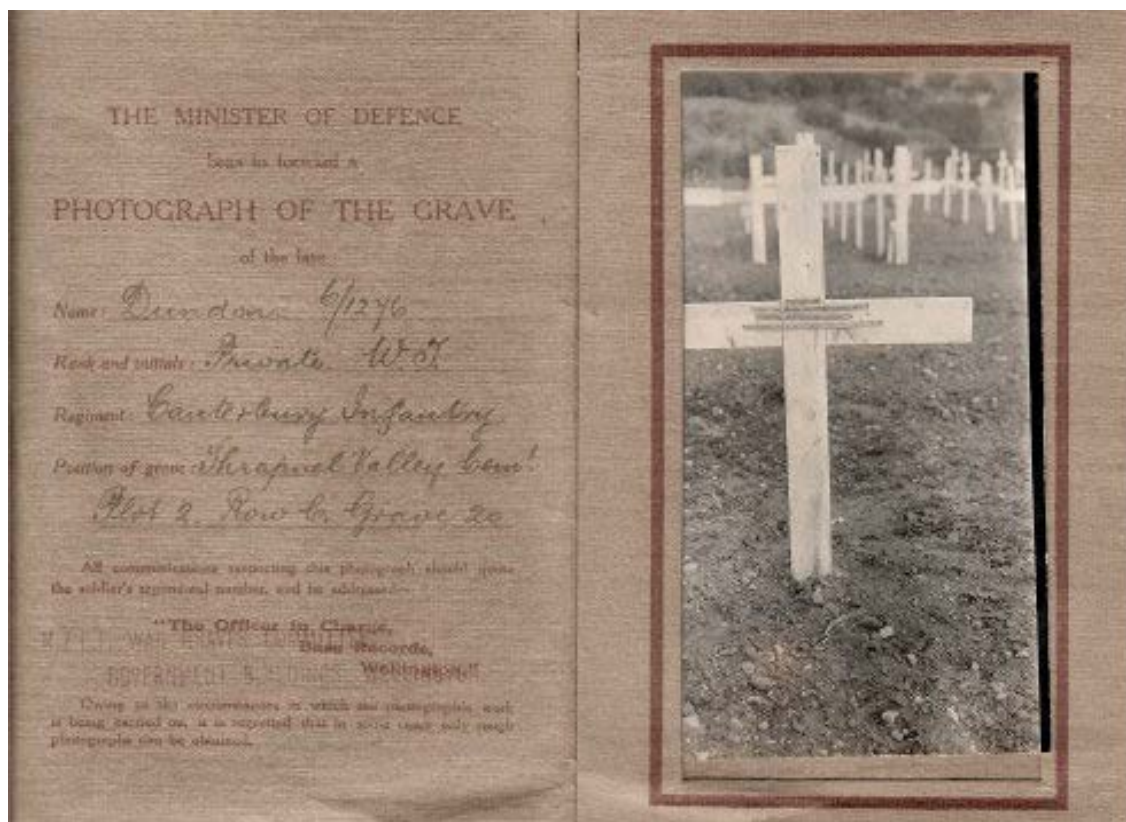 THE MINISTER OF DEFENCE
begs to forward a
PHOTOGRAPH OF THE GRAVE
of the late
Name: Dundon 6/1276
Rank and initials: Private W.J.
Regiment: Canterbury Infantry
Position of grave: Shrapnel Valley Cemt
Plot 2. Row C. Grave 20
All communications respecting this photograph should quote
the soldier's regimental number, and be addressed—
"The Officer in Charge,
Base Records,
WAR GRAVES
Wellington."
GOVERNMENT BUILDINGS
Owing to the circumstances in which the photographic work
is being carried on, it is regretted that in some cases only rough
photographs can be obtained.